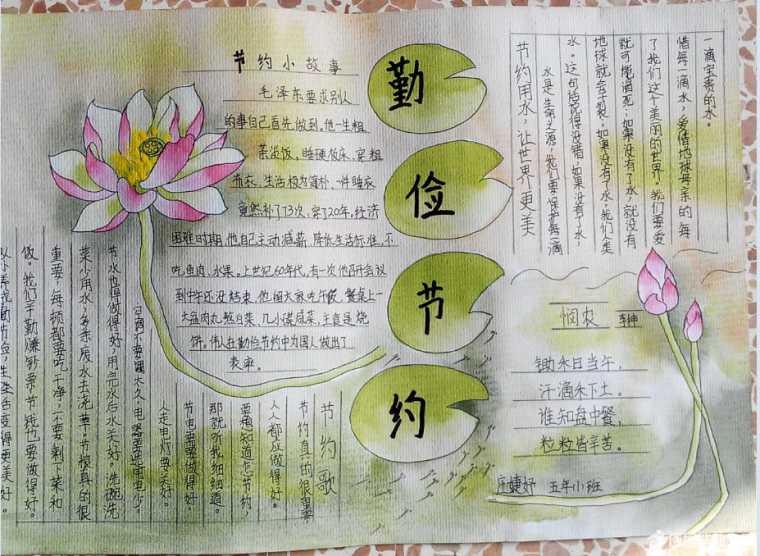 勤
俭
节
约
节约小故事
毛泽东要求别人
的事自己首先做到。他一生粗
茶淡饭、睡硬板床、穿粗
布衣、生活极为简朴、一件睡衣
竟然补了73次、穿了20年。经济
困难时期,他自己主动减薪、降低生活标准,不
吃鱼肉、水果。上世纪60年代,有一次他召开会议
到中午还没结束,他留大家吃午饭,餐桌上一
大盆肉丸熬白菜、几小碟咸菜,主食是烧
饼,伟人在勤俭节约中为国人做出了
表率。
节约用水,让世界更美
水是生命之源,我们要保护每滴
水,这句话说得没错,如果没有了水,
地球就会干裂;如果没有了水,我们人类
就可能渴死;如果没有了水,就没有
了我们这个美丽的世界。我们要爱
惜每一滴水,爱惜地球母亲的每
一滴宝贵的水。
悯农 李绅
锄禾日当午,
汗滴禾下土。
谁知盘中餐,
粒粒皆辛苦。
节约歌
节约真的很重要
人人都应做得好。
要想知道怎节约,
那就听我细细道。
节电要做得好。
人走电灯要关好。
节水也得做得好,用完水后水关好。洗碗洗
菜少用水,多余废水去浇草。节粮真的很
重要,每顿都要吃干净,不要剩下菜和
做。我们辛勤赚钞票,节钱也要做得好。
五年小班